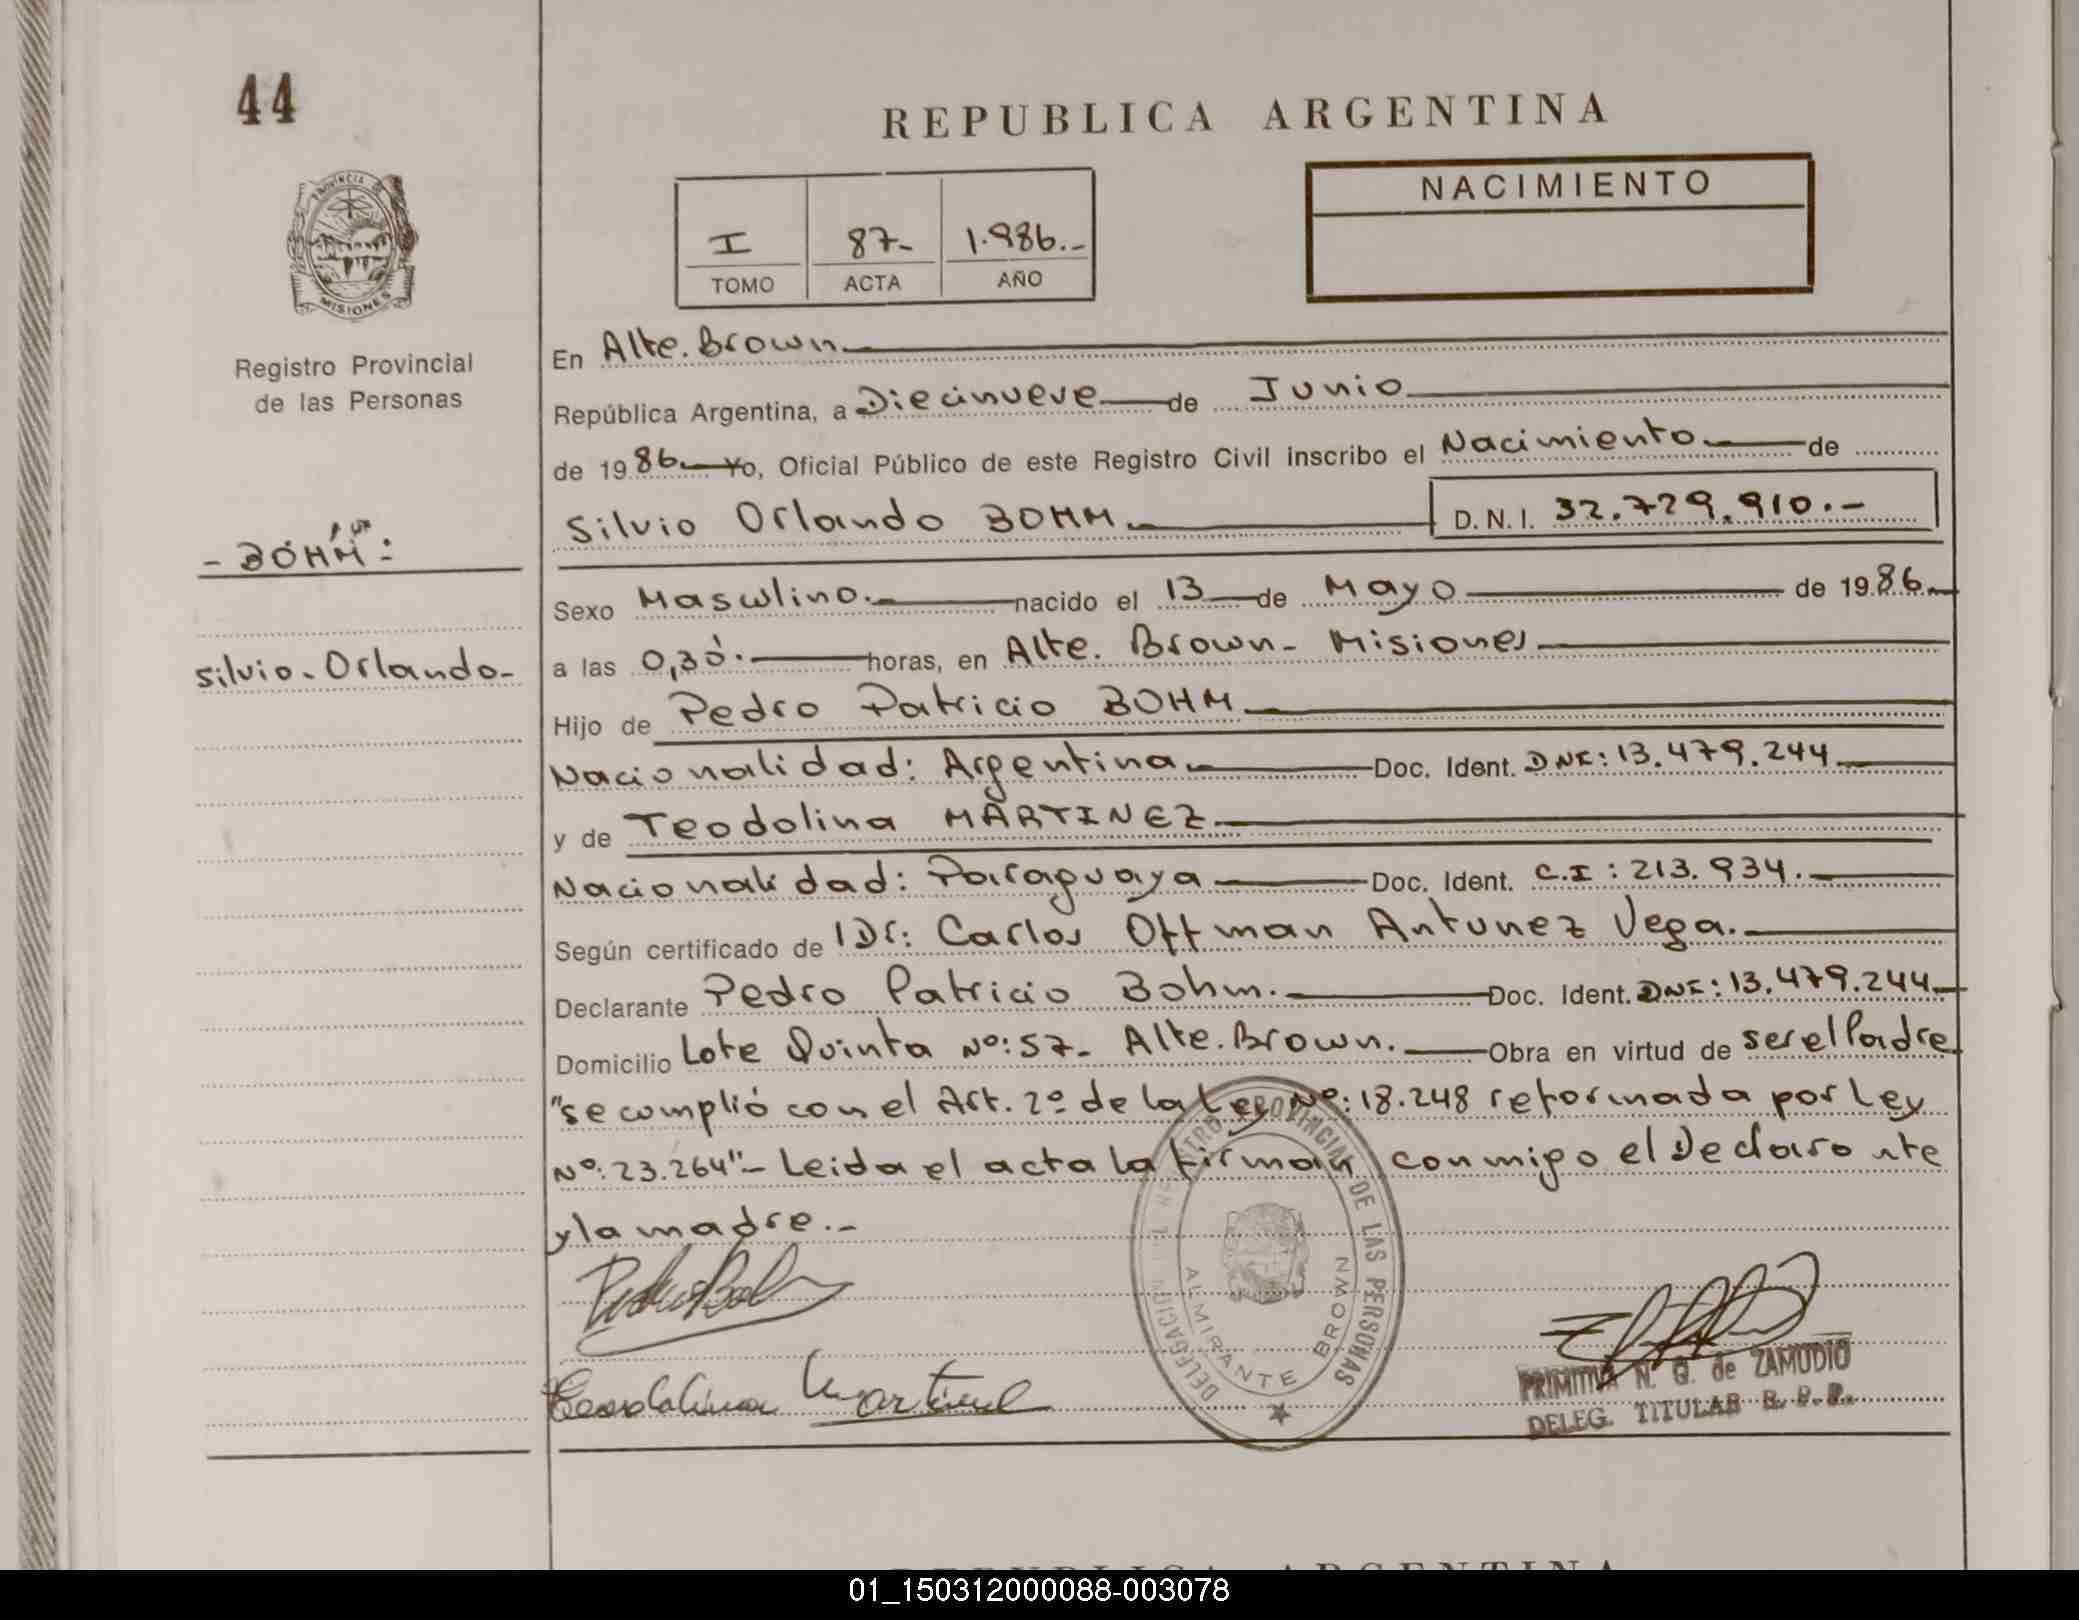 44
REPUBLICA ARGENTINA
NACIMIENTO
I 87- 1.986.-
TOMO ACTA AÑO
PROVINCIA DE
MISIONES
Registro Provincial
de las Personas
- BOHM:
Silvio - Orlando -
En Alte. Brown
República Argentina, a Diecinueve de Junio
de 1986 Yo, Oficial Público de este Registro Civil inscribo el Nacimiento de
Silvio Orlando BOHM D.N.I. 32.729.910.-
Sexo Masculino. nacido el 13 de Mayo de 1986.
a las 0,30. horas, en Alte. Brown - Misiones
Hijo de Pedro Patricio BOHM
Nacionalidad: Argentina Doc. Ident. DNI: 13.479.244
y de Teodolina MARTINEZ
Nacionalidad: Paraguaya Doc. Ident. C.I: 213.934.
Según certificado de Dr: Carlos Offman Antunez Vega.
Declarante Pedro Patricio Bohm. Doc. Ident. DNI: 13.479.244
Domicilio Lote Quinta Nº: 57- Alte. Brown. Obra en virtud de ser el Padre
"se cumplió con el Art. 2º de la Ley Nº: 18.248 reformada por Ley
Nº: 23.264".- Leida el acta la firman conmigo el Declarante
y la madre.-
Teodolina Martinez
REGISTRO PROVINCIAL DE LAS PERSONAS
DELEGACION
ALMIRANTE BROWN
PRIMITIVA N. G. de ZAMUDIO
DELEG. TITULAR R. P. P.
REPUBLICA ARGENTINA
01_150312000088-003078